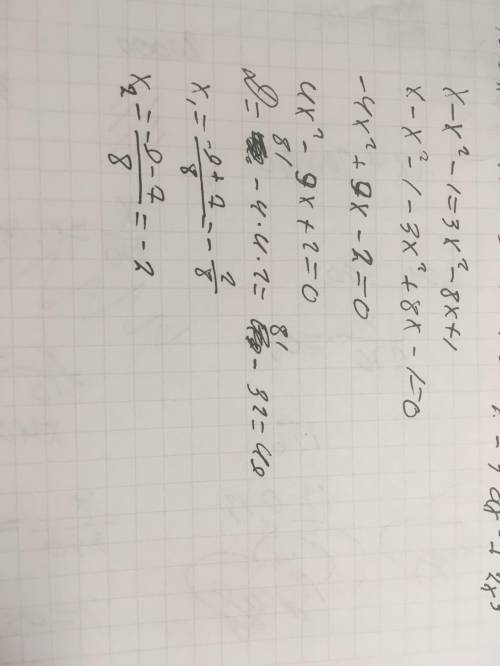 x - x² - 1 = 3x² - 8x + 1
x - x² - 1 - 3x² + 8x - 1 = 0
-4x² + 9x - 2 = 0
4x² - 9x + 2 = 0
D = 81 - 4·4·2 = 81 - 32 = 49
x₁ = (-9 + 7)/8 = -2/8
x₂ = (-9 - 7)/8 = -2